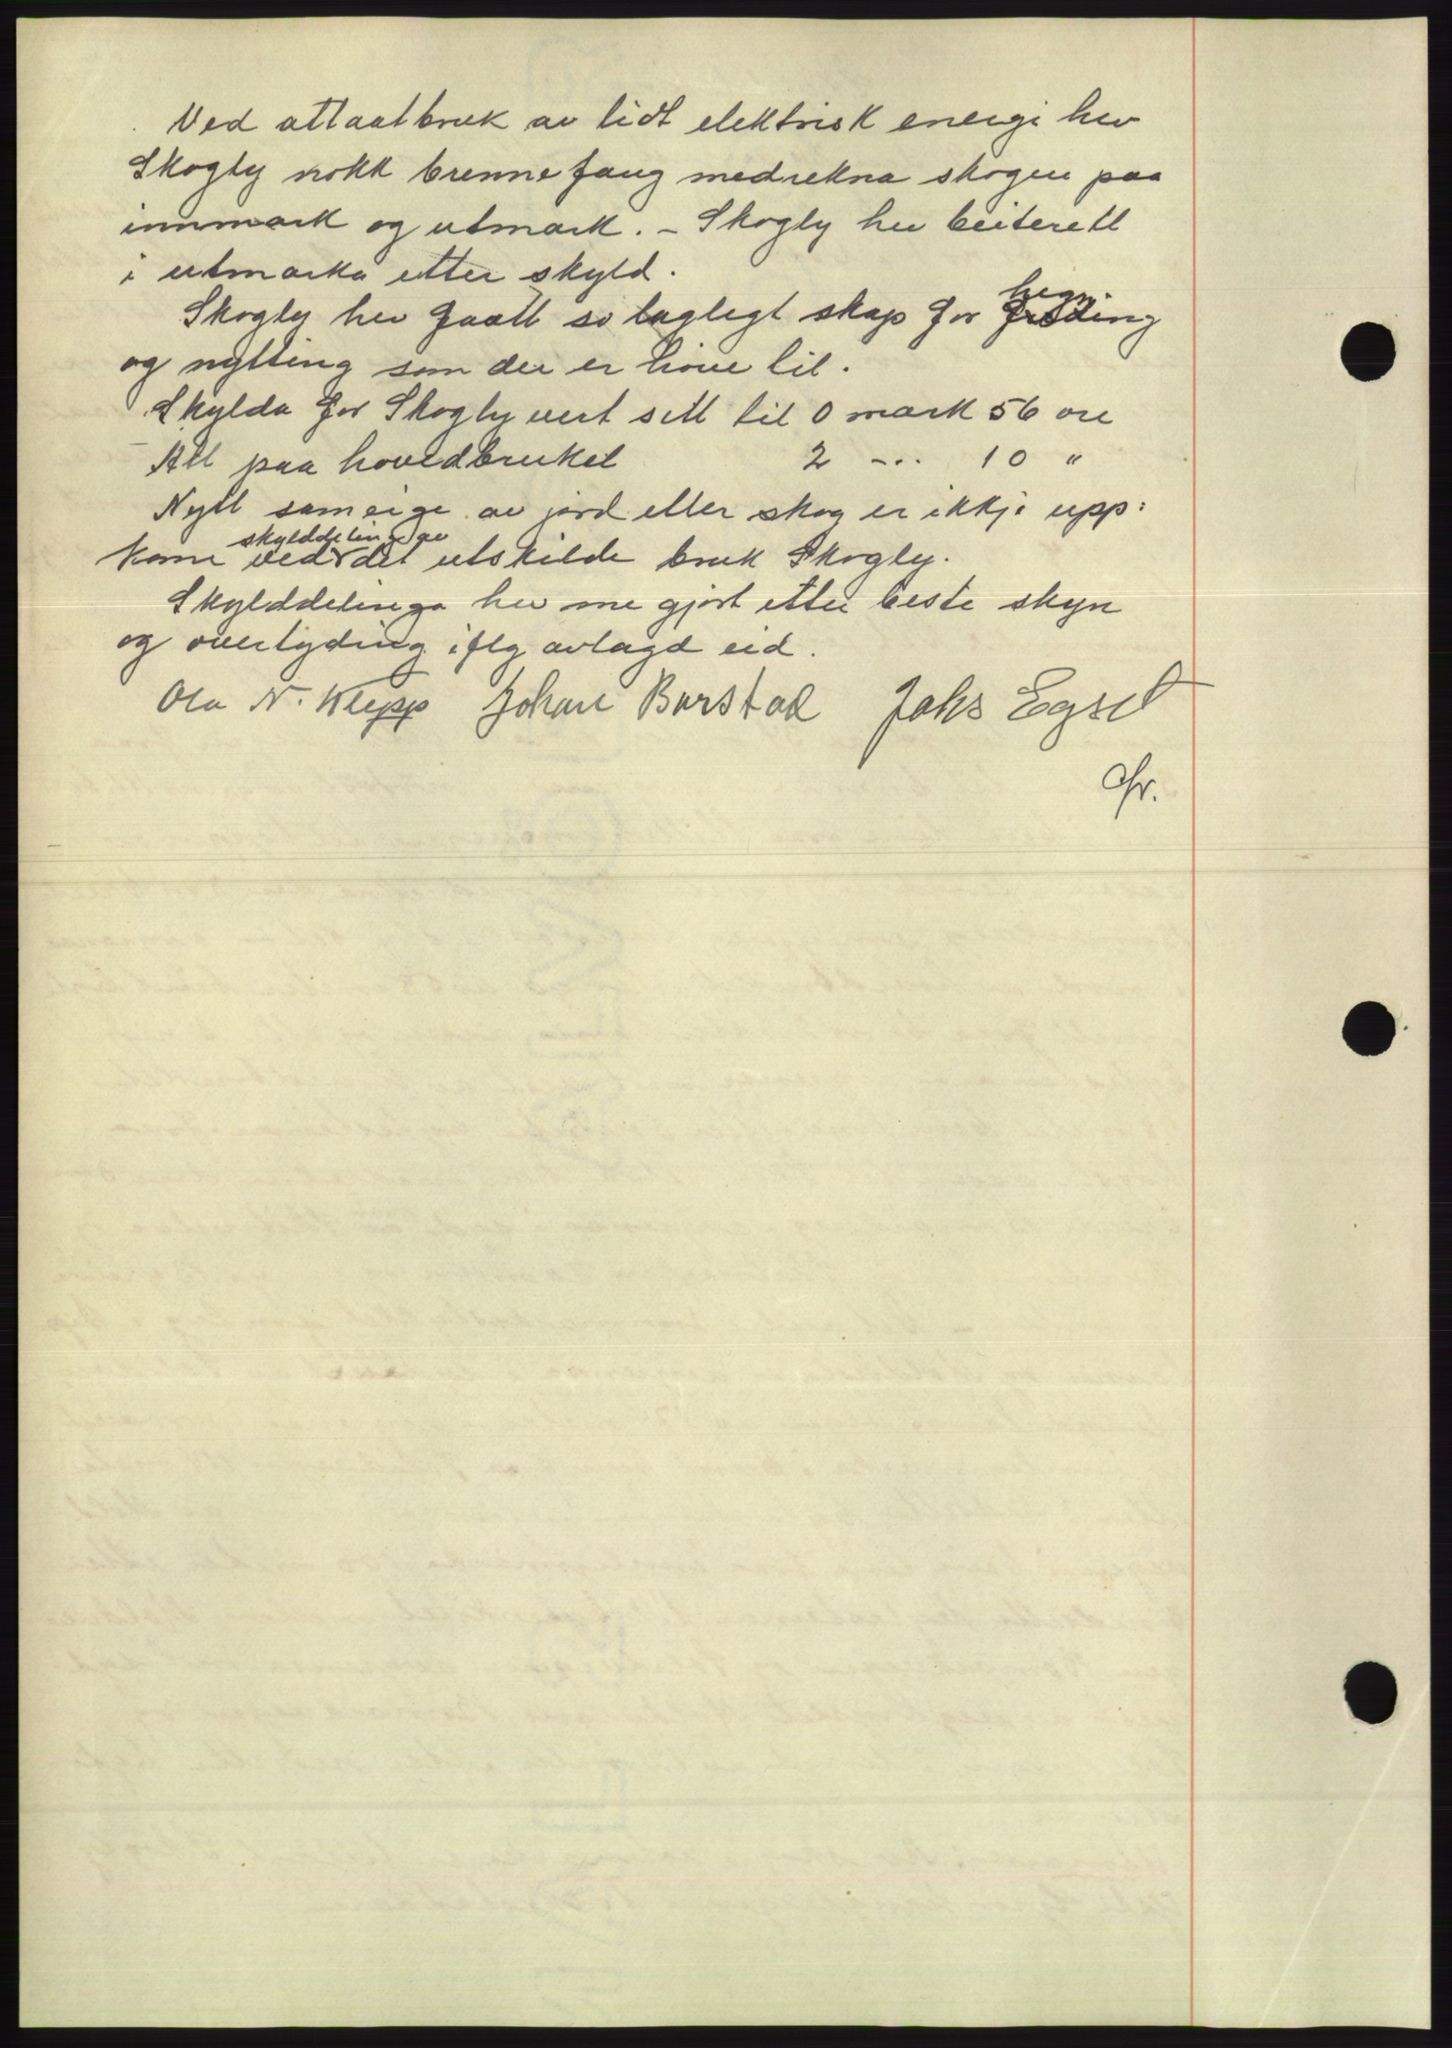 Ved attaatbruk av lidt elektrisk energi hev
Skogly nokk brennefang medrekna skogen paa
innmark og utmark. – Skogly hev beiterett
i utmarka etter skyld.
Skogly hev faatt so laglegt skap for hegning
og nytting som der er höve til.
Skylda for Skogly vert sett til 0 mark 56 øre
Att paa hovedbruket 2 –..– 10 "
Nytt sameige av jord eller skog er ikkje upp:
kome ved skylddelinga av det utskilde bruk Skogly.
Skylddelinga hev me gjort etter beste skyn
og overtyding iflg avlagd eid.
Ola N. Klepp Johan Barstad Jaks Egset